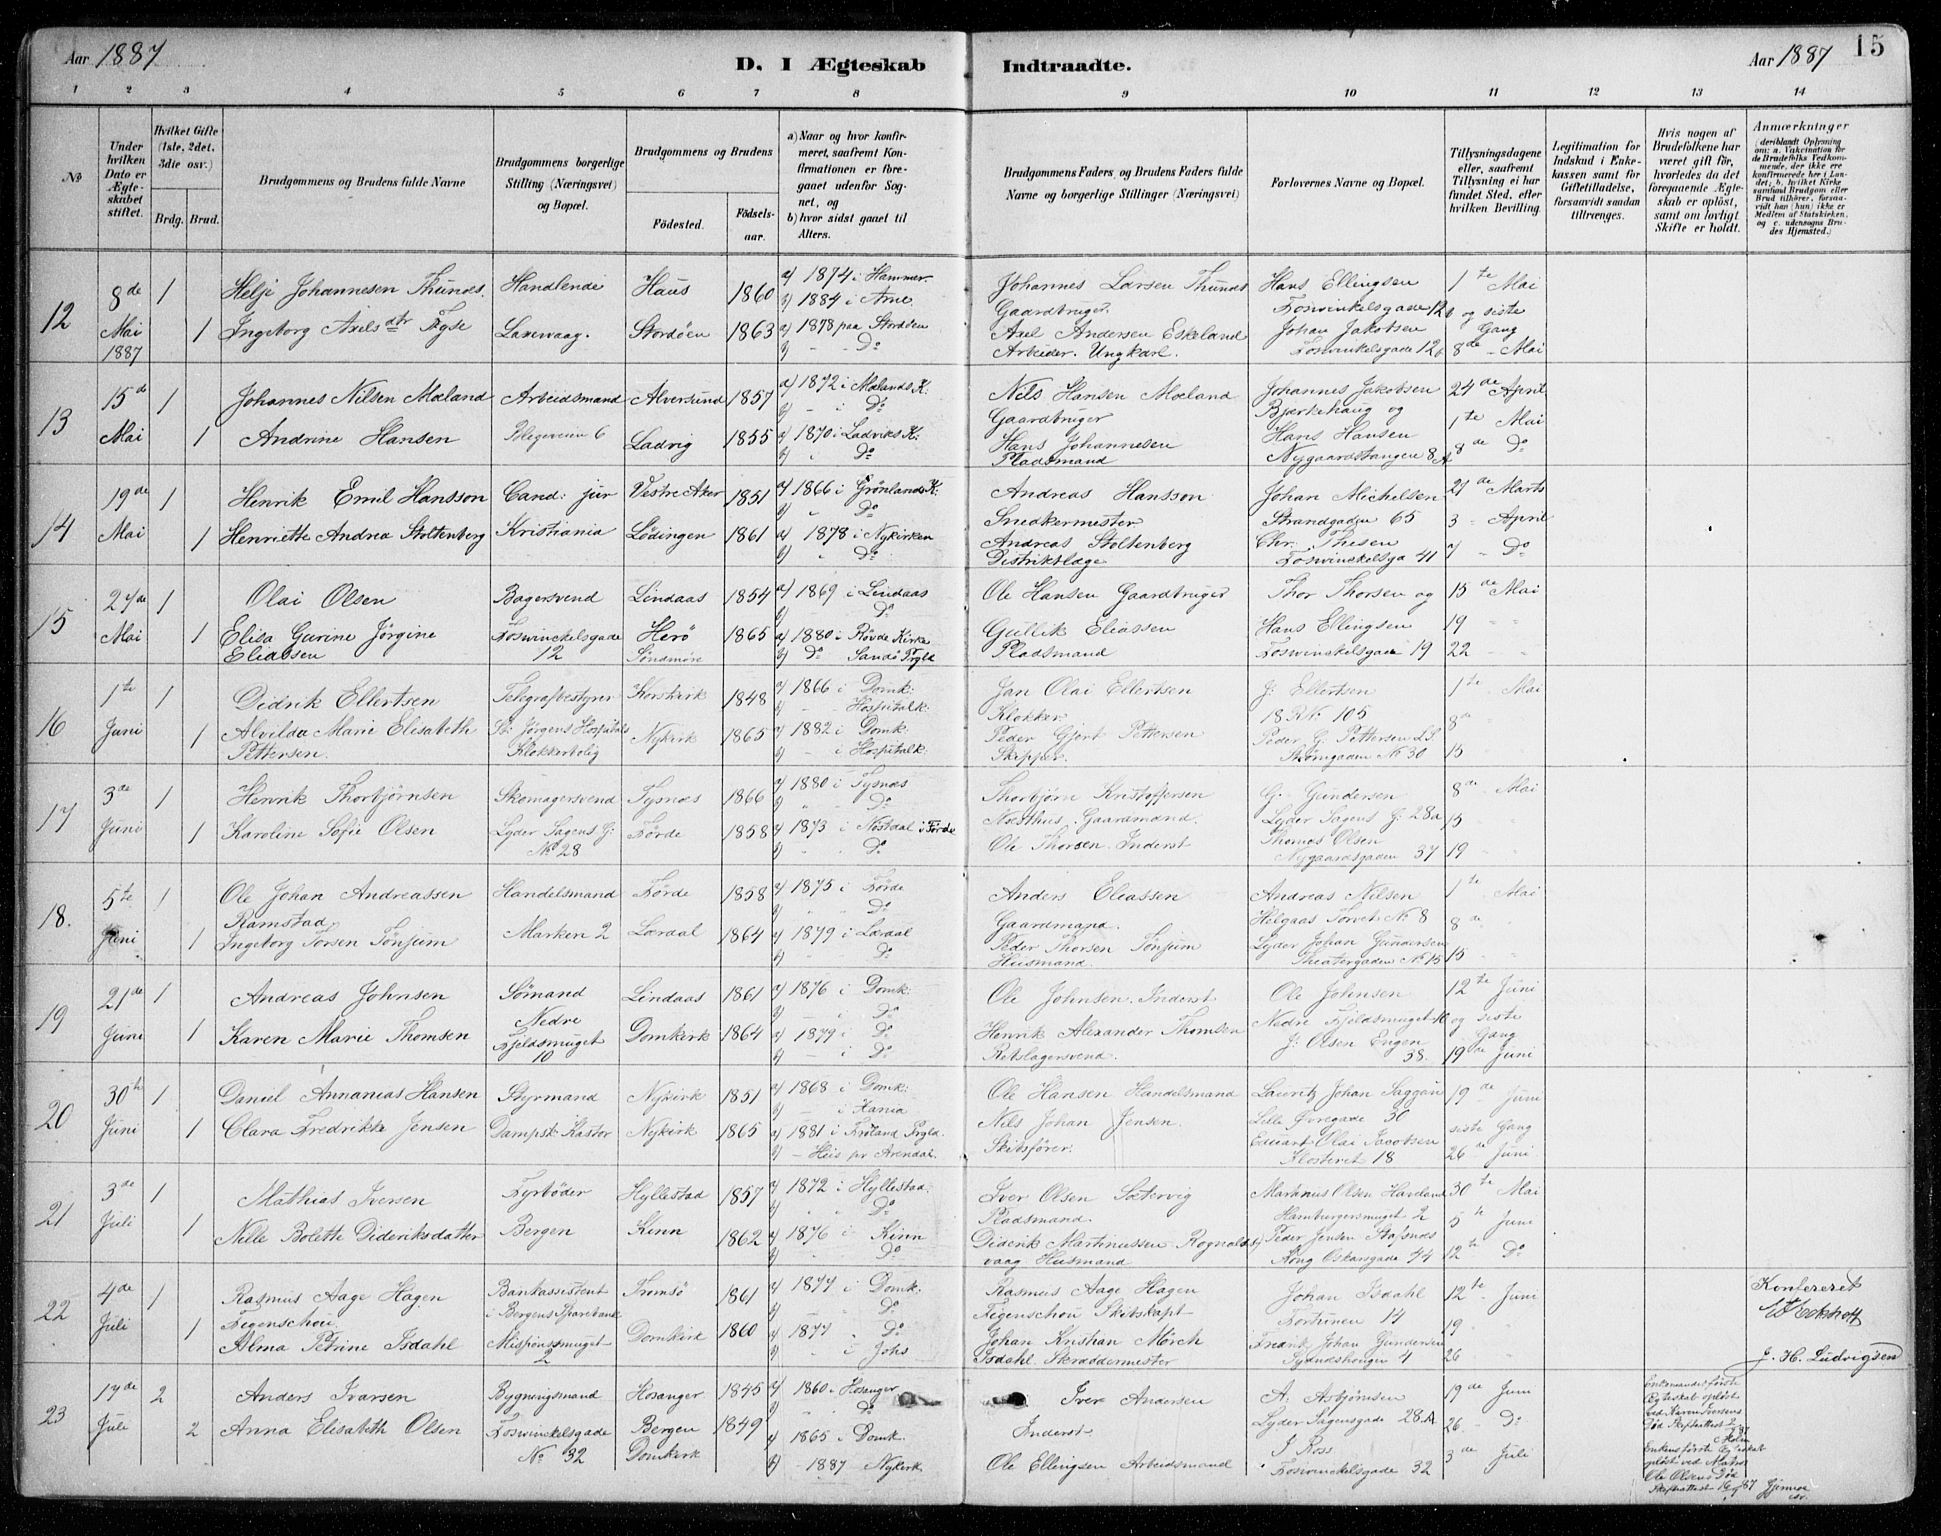 Aar 1887
D. I Ægteskab Indtraadte.
Aar 1887 15
1 2 3 4 5 6 7 8 9 10 11 12 13 14
No
Under hvilken Dato er Ægteskabet stiftet.
Hvilket Gifte (1ste, 2det, 3die osv.)
Brdg. Brud.
Brudgommens og Brudens fulde Navne
Brudgommens borgerlige Stilling (Næringsvei) og Bopæl.
Brudgommens og Brudens
Fødested. Fødselsaar.
a) Naar og hvor konfirmeret, saafremt Konfirmationen er foregaaet udenfor Sognet, og
b) hvor sidst gaaet til Alters.
Brudgommens Faders, og Brudens Faders fulde Navne og borgerlige Stillinger (Næringsvei)
Forlovernes Navne og Bopæl.
Tillysningsdagene eller, saafremt Tillysning ei har fundet Sted, efter hvilken Bevilling.
Legitimation for Indskud i Enkekassen samt for Giftetilladelse, forsaavidt saadan tiltrænges.
Hvis nogen af Brudefolkene har været gift før, hvorledes da det foregaaende Ægteskab er opløst, samt om lovligt Skifte er holdt.
Anmærkninger (deriblandt Oplysning om: a. Vakcination for de Brudefolks Vedkommende, der ikke ere konfirmerede her i Landet; b. hvilket Kirkesamfund Brudgom eller Brud tilhører, forsaavidt han (hun) ikke er Medlem af Statskirken, og c. udensogns Brudes Hjemsted.)
12 8de Mai 1887 1 1
Helje Johannesen Thunes. Handlende Haus 1860 a) 1874 i Hammer b) 1884 i Arne
Ingeborg Axelsdtr Fygse Laxevaag. Stordøen 1863 a) 1878 paa Stordøen b) - - Do
Johannes Larsen Thunes Gaardbruger
Axel Andersen Eskeland Arbeider. Ungkarl.
Hans Ellingsen Foswinkelsgade 12b
Johan Jakobsen Foswinkelsgade 12b
1te Mai og siste Gang 8de - Mai
13 15de Mai 1 1
Johannes Nilsen Mæland Arbeidsmand Alversund 1857 a) 1872 i Mælands K: b) - i Do
Andrine Hansen Plegeveien 6 Ladvig 1855 a) 1870 i Ladviks K: b) Do
Nils Hansen Mæland Gaardbruger
Hans Johannesen Pladsmand
Johannes Jakobsen Bjerkehaug og
Hans Hansen Nygaardstangen 8A
24de April 1te Mai 8de Do
14 19de Mai 1 1
Henrik Emil Hansson Cand: jur Vestre Aker 1851 a) 1866 i Grønlands K: b) " Do
Henriette Andrea Stoltenberg Kristiania Lødingen 1861 a) 1878 i Nykirken b) Do
Andreas Hansson Snedkermester
Andreas Stoltenberg Distriktslæge
Johan Michelsen Strandgaden 65
Chr. Thesen Foswinckelsga 41
27de Marts 3 - April 7 " Do
15 27de Mai 1 1
Olai Olsen Bagersvend Lindaas 1854 a) 1869 i Lindaas b) Do
Elisa Gurine Jørgine Eliassen Foswinckelsgade 12 Herø Søndmøre 1865 a) 1880 i Røvde Kirke b) Do Sandø Prgld
Ole Hansen Gaardbruger
Gullik Eliassen Pladsmand
Thor Thorsen og
Hans Ellingsen Foswinkelsgade 19
15de Mai 19 " " 22 - -
16 1te Juni 1 1
Didrik Ellertsen Telegrafbestyrer Korskirk 1848 a) 1866 i Domk: b) - - Hospitalk:
Alvilda Marie Elisabeth Pettersen. St: Jørgens Hospitals Klokkerbolig Nykirk 1865 a) 1882 i Domk. b) - i Hospitalk:
Jan Olai Ellertsen Klokker
Peder Gjert Pettersen Skipper.
J: Ellertsen 18 R No 105
Peder G. Pettersen Strømgaden No 30
1te Mai 8de " 15 "
17 3de Juni 1 1
Henrik Thorbjørnsen Skomagersvend Tysnes 1866 a) 1880 i Tysnes b) " " Do
Karoline Sofie Olsen Lyder Sagens G: No 28 Førde 1858 a) 1873 i Nøstdal i Førde b) " " Do
Thorbjørn Kristoffersen Næsthus. Gaardmand.
Ole Thorsen. Inderst
G. Gundersen Lyder Sagens G: 28a
Thomas Olsen Nygaardsgaden 37
8de - Mai 15 19
18. 5te Juni 1 1
Ole Johan Andreassen Ramstad Handelsmand Førde 1858 a) 1875 i Førde b) " " Do
Ingeborg Torsen Tønjum Marken 2 Lærdal 1864 a) 1879 i Lærdal b) - - Do
Anders Eliassen Gaardmand.
Peder Thorsen Tønjum Husmand.
Andreas Nilsen Helgaas Torvet No 8
Lyder Johan Gundersen Theatergaden No 15
1te Mai 8de " 15 " "
19 21de Juni 1 1
Andreas Johnsen Sømand Lindaas 1861 a) 1876 i Domk: b) - i Do
Karen Marie Thomsen Nedre Fjeldsmuget 10 Domkirk 1864 a) 1879 i Do b) - i Do
Ole Johnsen. Inderst
Henrik Alexander Thomsen Rebslagersvend.
Ole Johnsen Nedre Fjeldsmuget 10
J: Olsen Engen 38.
12te Juni og siste Gang 19de Juni
20 30te Juni 1 1
Daniel Annanias Hansen Styrmand Nykirk 1851 a) 1868 i Domk: b) - i Xania
Clara Fredrikke Jensen Dampsk: Kastor Nykirk 1865 a) 1881 i Froland Prgld. b) - Huis pr Arendal.
Ole Hansen Handelsmand
Nils Johan Jensen. Skibsfører.
Lauritz Johan Saggau Lille Øvregade 30
Edvart Olai Jacobsen Klosteret 18
19de Juni siste Gang 26de Juni
21 3de Juli 1 1
Mathias Iversen Fyrbøder Hyllestad 1857 a) 1872 i Hyllestad: b) " " Do
Nille Bolette Dideriksdatter Bergen Kinn 1862 a) 1876 i Kinn b) " Do
Iver Olsen Sætervig Pladsmand.
Diderik Martinussen Rognaldsvaag Husmand
Martinus Olsen Havland Hamburgersmuget 2
Peder Jensen Stafsnes Kong Oskarsgade 44
30te Mai 5te Juni 12te Do
22 4de Juli 1 1
Rasmus Aage Hagen Figenschou. Bankassistent i Bergens Sparebank Tromsø 1861 a) 1877 i Domk. b) " " Do
Alma Petrine Isdahl Missionssmuget 2 Domkird 1860 a) 1877 " Do b) " i Johs
Rasmus Aage Hagen Figenschou Skibskapt
Johan Kristian Mørch Isdahl. Skræddermester
Johan Isdahl Fortunen 14
Fredrik Johan Gundersen Sydneshougen 4
12te - Juni 19 " 26 "
Konfereret
J. H. Ludvigsen
23 17de Juli 2 2
Anders Ivarsen Bygningsmand Hosanger 1845 a) 1860 i Hosanger b) - Do
Anna Elisabeth Olsen Foswinckelsgade No 32 Bergen Domkirk 1849 a) 1865 i Domk. b) - 1887 Nykirk
Iver Andersen Inderst
Ole Ellingsen Arbeidsmand
A. Asbjørnsen Lyder Sagensgade 28.A
J Ross Foswinckelsgade 32
19de Juni 26 - Do 3de Juli
Enkemandens første Ægteskab opløst ved Karen Iversens Død Skifteattest
Enkens første Ægteskab opløst ved Ole Olsens Død Skifteattest